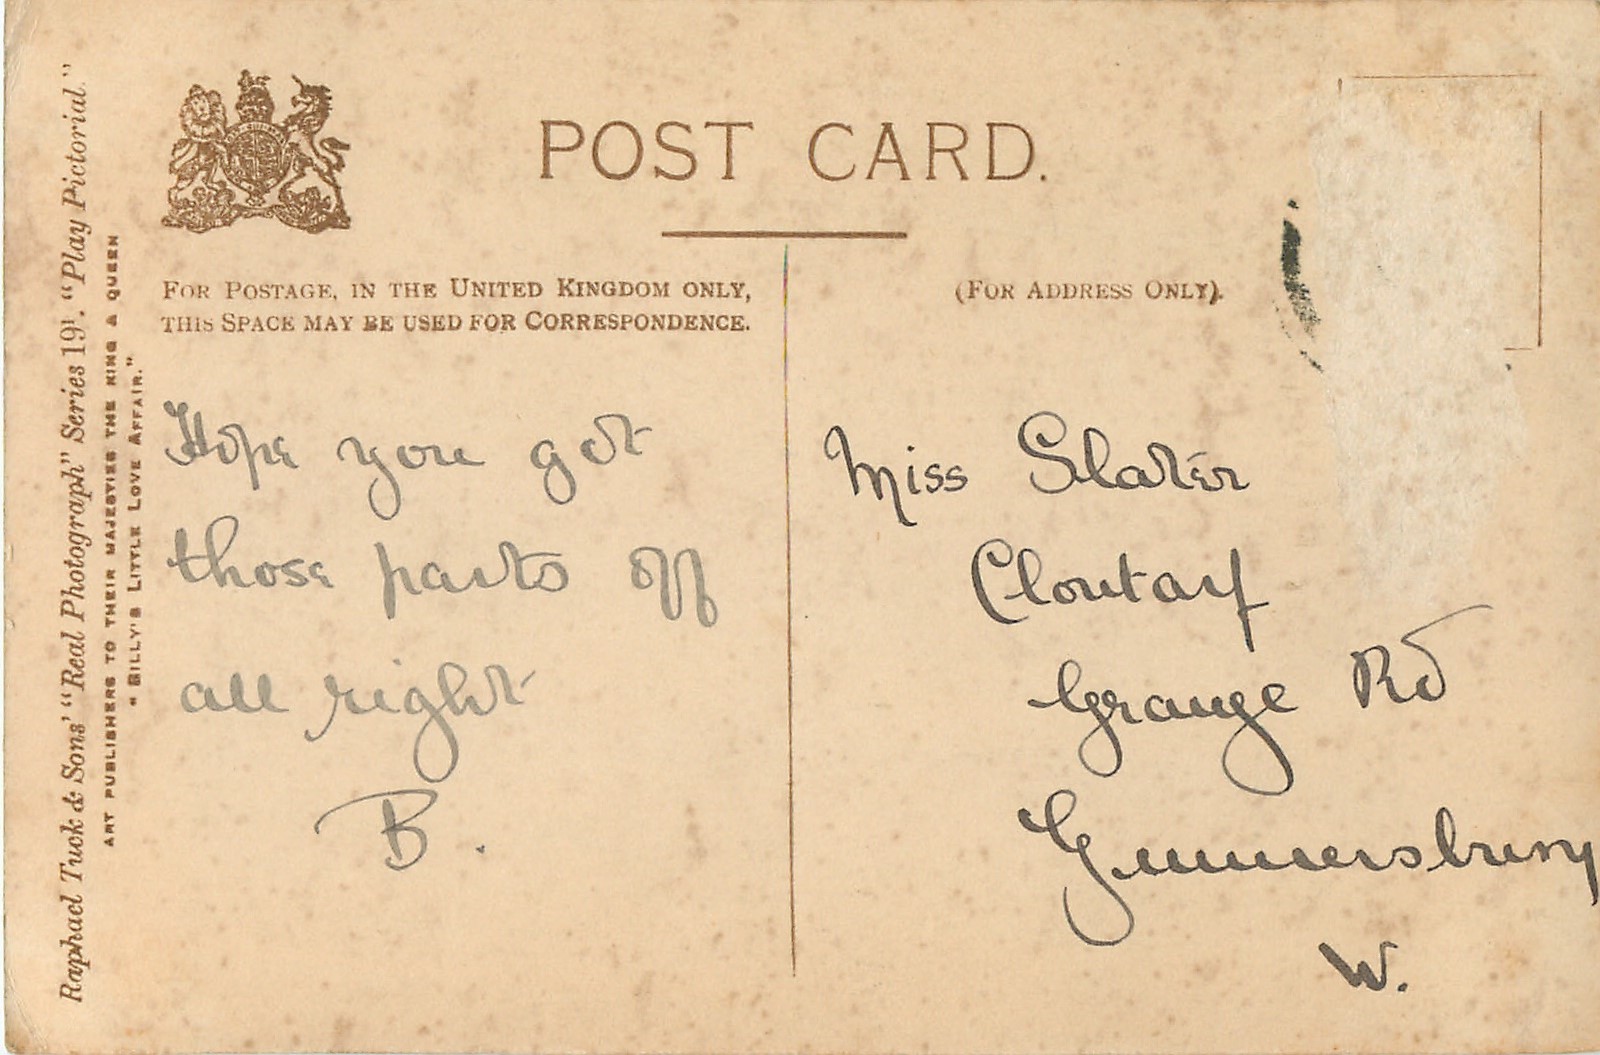 POST CARD.
FOR POSTAGE, IN THE UNITED KINGDOM ONLY,
THIS SPACE MAY BE USED FOR CORRESPONDENCE.
(FOR ADDRESS ONLY).
Raphael Tuck & Sons' "Real Photograph" Series 191. "Play Pictorial."
ART PUBLISHERS TO THEIR MAJESTIES THE KING & QUEEN
"BILLY'S LITTLE LOVE AFFAIR."
Hope you got
those parts off
all right
B.
Miss Slater
Grange Rd
Gunnersbury
W.